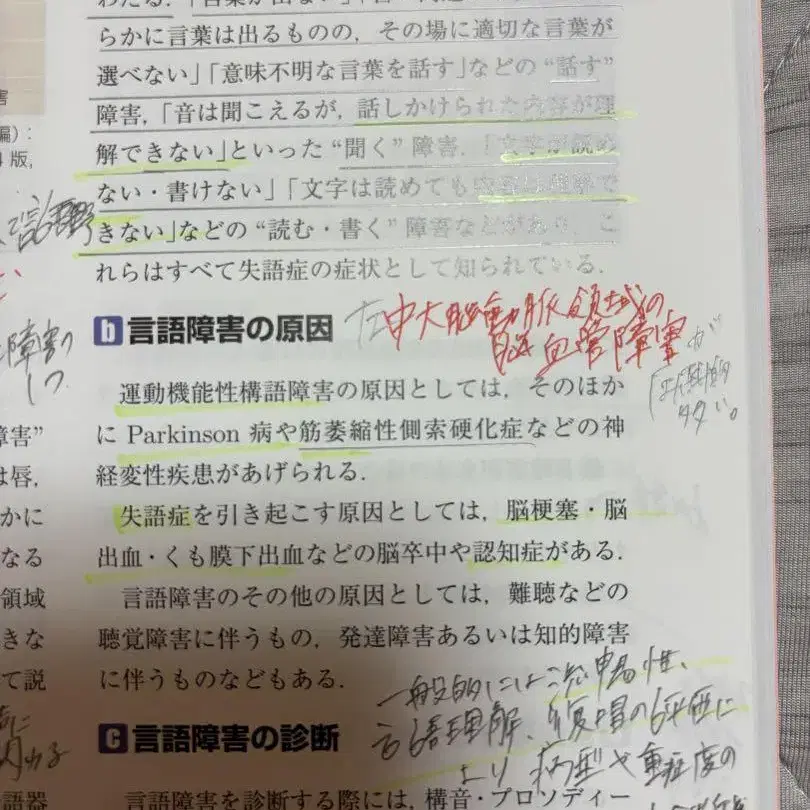 らかに言葉は出るものの，その場に適切な言葉が
選べない」「意味不明な言葉を話す」などの“話す”
障害，「音は聞こえるが，話しかけられた内容が理
解できない」といった“聞く”障害，「文字が読め
ない・書けない」「文字は読めても内容は理解で
きない」などの“読む・書く”障害などがあり，こ
れらはすべて失語症の症状として知られている．
b 言語障害の原因
左中大脳動脈領域の
脳血管障害が
多い。
運動機能性構語障害の原因としては，そのほか
に Parkinson 病や筋萎縮性側索硬化症などの神
経変性疾患があげられる．
失語症を引き起こす原因としては，脳梗塞・脳
出血・くも膜下出血などの脳卒中や認知症がある．
言語障害のその他の原因としては，難聴などの
聴覚障害に伴うもの，発達障害あるいは知的障害
に伴うものなどもある．
一般的には流暢性、
言語理解、復唱の評価に
より病型や重症度の
c 言語障害の診断
言語障害を診断する際には，構音・プロソディー
害
編）：
版，
障害の
1つ
障害”
は唇，
かに
なる
領域
きな
て説
語器